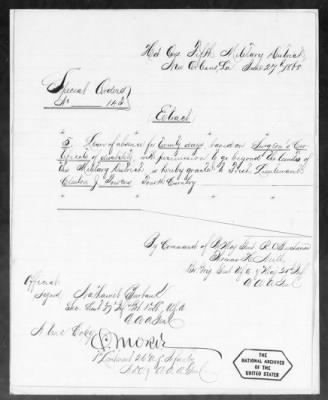 Hd Qrs Fifth Military District
New Orleans, La June 27th 1868
Special Orders
No 146
Extract
5. Leave of absence for twenty days based on Surgeon's Cer-
tificate of disability with permission to go beyond the limits of
the Military District, is hereby granted to First Lieutenant
Fourth Cavalry
By Command of Bt Maj Genl R. C. Buchanan
Thomas H. Neill
Bt Brig Genl U.S.A. & Maj
A. A. A. Genl
Official
Signed Nathaniel Burbank
U.S.A
A. A. A. Genl
A true Copy
1st Lieutenant 26
A. A. A. Genl
THE
NATIONAL ARCHIVES
OF THE
UNITED STATES